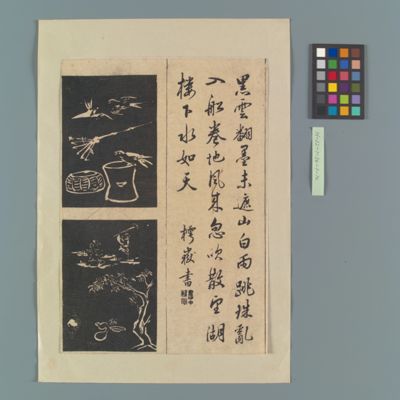 黒雲翻墨未遮山白雨跳珠亂
入船巻地風来忽吹散望湖
樓下水如天
書